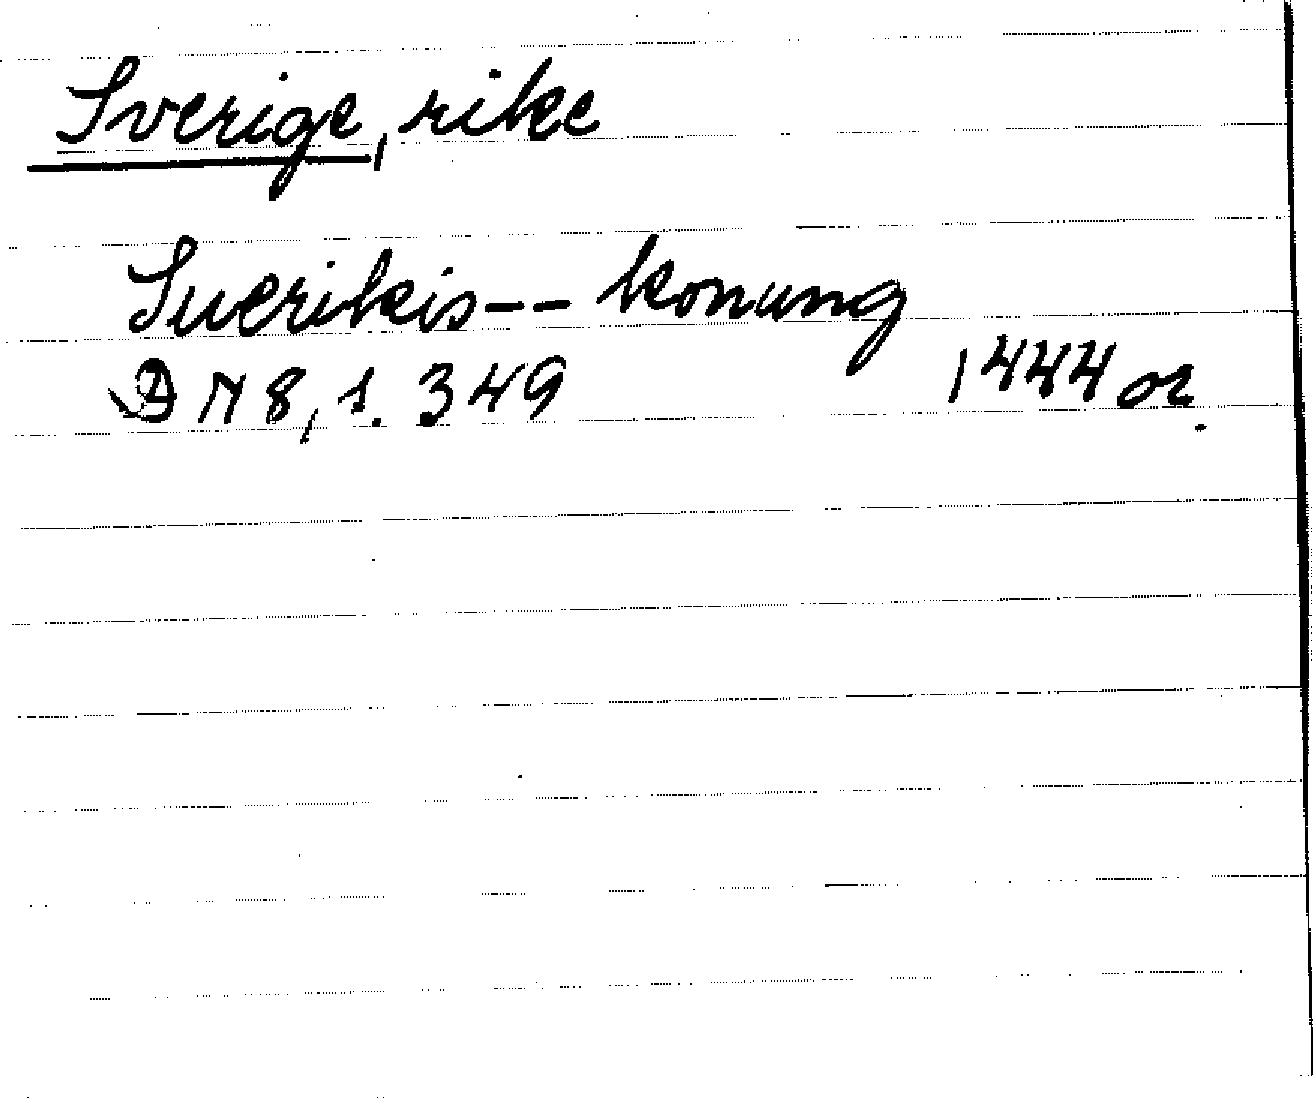 Sverige, rike
Suerikis -- konung
DN 8, 1. 349 1444 or.